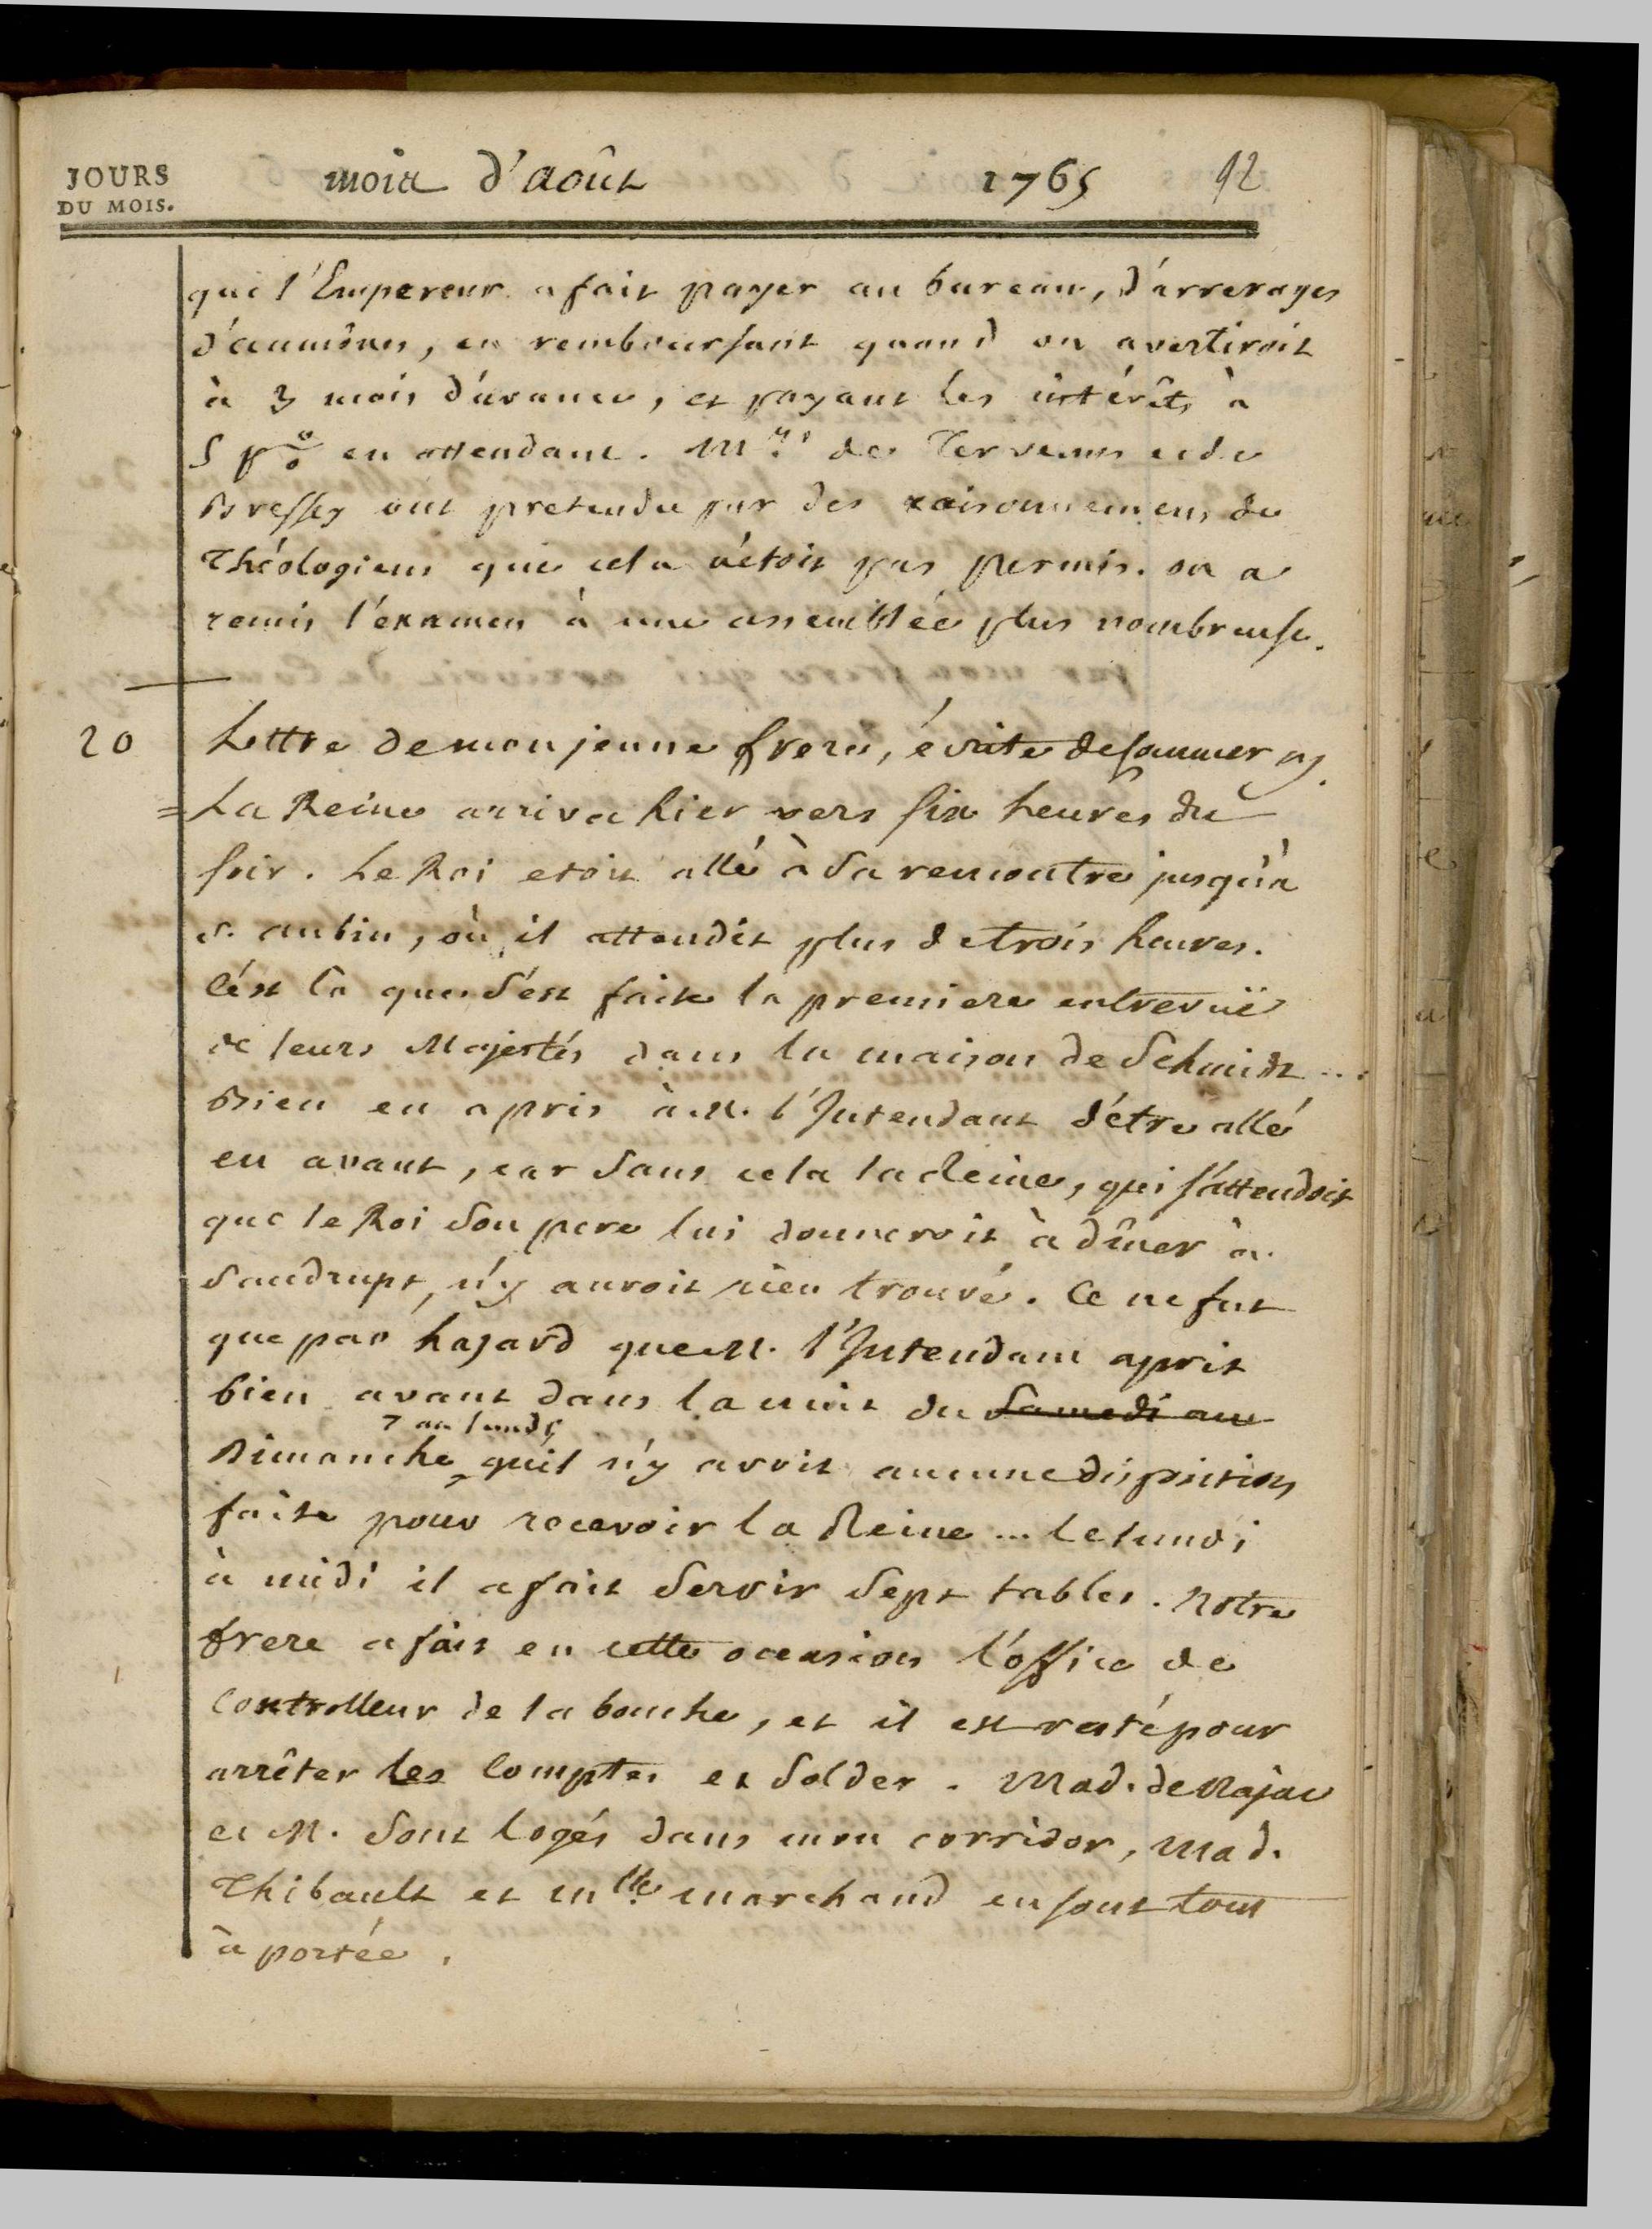 JOURS
DU MOIS.
mois d'août 1765 92
que l'Empereur a fait payer au bureau, d'arrerages
d'aumônes, en remboursant quand on avertiroit
à 3 mois d'avance, et payant les intérêts à
5 p% en attendant. Mrs. des Tervenus et de
Bressey ont pretendu par des raisonnemens de
Théologiens que cela n'étoit pas permis. on a
remis l'examen à une assemblée plus nombreuse.
20 Lettre de mon jeune frere, écrite de Commercy.
= La Reine arriva hier vers six heures du
soir. Le Roi etoit allé à sa rencontre jusqu'à
s. aubin, où il attendit plus de trois heures.
C'est là que s'est faite la premiere entrevuë
de leurs Majestés dans la maison de Schmidt ...
Bien en a pris à M. l'Intendant d'être allé
en avant, car sans cela la Reine, qui s'attendoit
que le Roi son pere lui donneroit à dîner à
Saudrupt, n'y auroit rien trouvé. Ce ne fut
que par hazard que M. l'Intendant aprit
bien avant dans la nuit du Samedi au
7 au lundi
Dimanche qu'il n'y avoit aucune disposition
faite pour recevoir la Reine ... le lundi
à midi il a fait servir sept tables. Notre
frere a fait en cette occasion l'office de
Controlleur de la bouche, et il est resté pour
arrêter les Comptes et solder. Mad. de Najac
et M. sont logés dans mon corridor, Mad.
Thibault et Mlle. marchand en sont tout
à portée.